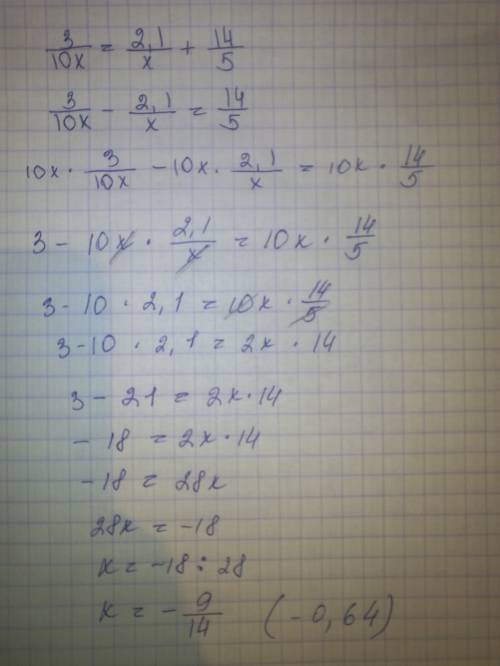 3/10x = 2,1/x + 14/5
3/10x - 2,1/x = 14/5
10x · 3/10x - 10x · 2,1/x = 10x · 14/5
3 - 10x · 2,1/x = 10x · 14/5
3 - 10 · 2,1 = 10x · 14/5
3 - 10 · 2,1 = 2x · 14
3 - 21 = 2x · 14
- 18 = 2x · 14
- 18 = 28x
28x = -18
x = -18 : 28
x = - 9/14 (-0,64)